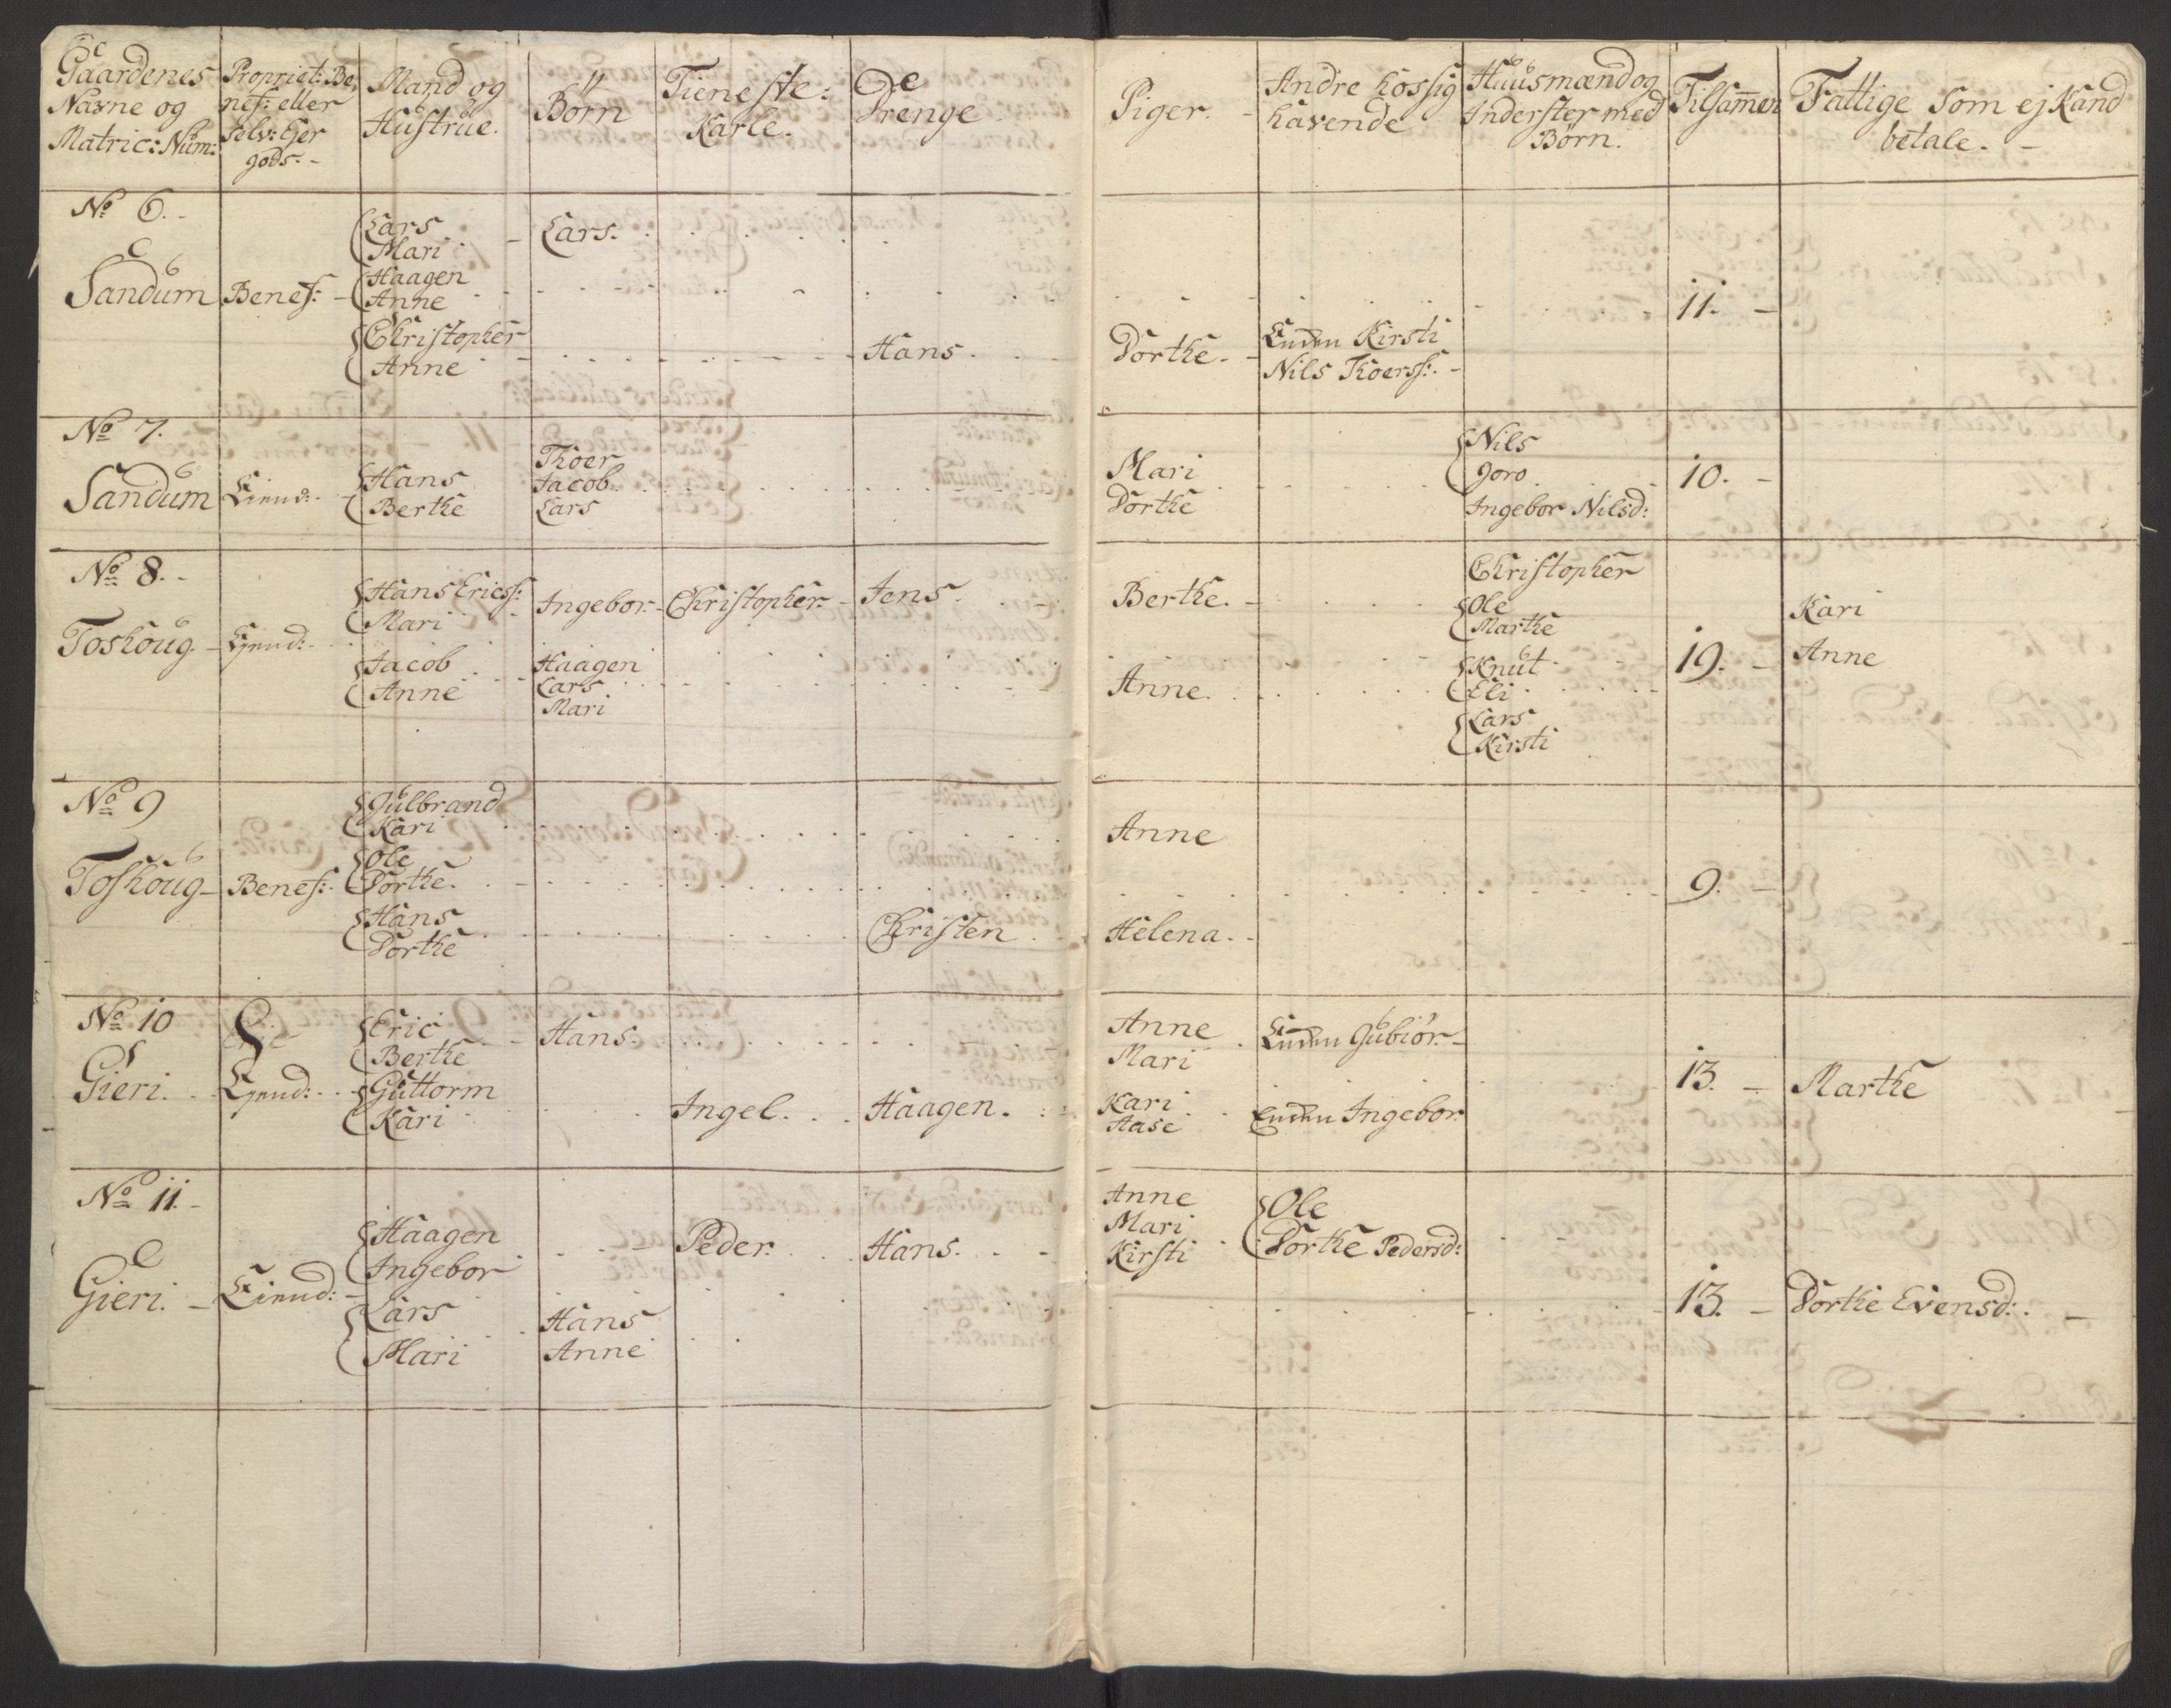 Gaardenes Navne og Matric: Num:
Propriet: Be, nef: eller Selv: Ejer gods. -
Mand og Hustrue.
Börn
Tieneste: Karle.
Drenge
Piger. -
Andre hossig havende
Huusmænd og Inderster med Börn.
Tilsam̄en
Fattige som ej Kand betale. -
No 6. -
Sandum Benef: -
Lars
Mari - Lars.
Haagen
Anne
11. -
Christopher
Anne - Hans. Dorthe. - Kirsti
Nils Thoerss: -
No 7.
Sandum
Hans
Berthe
Thoer
Jacob
Lars
Mari
Dorthe
Nils
Joro
Ingebor Nilsd:
10. -
No 8. -
Toshoug -
Hans Ericss:
Mari
Ingebor - Christopher - Jens. Berthe. -
Christopher
Ole
Marthe
Kari
Jacob
Anne
Haagen
Lars
Mari
Anne.
Knut
Eli
Lars
Kirsti
19. - Anne
No 9
Toshoug - Benef:
Gulbrand
Kari
Anne
Ole
Dorthe.
9. -
Hans
Dorthe
Christen Helena. -
No 10
Gieri.
Eric
Berthe - Hans.
Anne
Mari
Gubiör -
Guttorm
Kari
Ingel. Haagen.
Kari
Aase
Ingebor
13. - Marthe
No 11. -
Gieri. -
Haagen
Ingebor
- Peder. Hans. -
Anne
Mari
Kirsti
Ole
Dorthe Pedersd:
Lars
Mari
Hans
Anne
13. - Dorthe Evensd: -